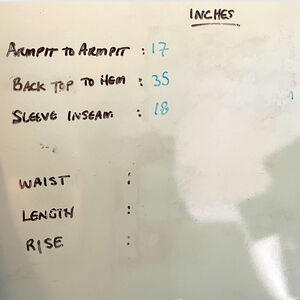 INCHES
ARMPIT TO ARMPIT : 17
BACK TOP TO HEM : 35
SLEEVE INSEAM : 18
WAIST :
LENGTH :
RISE :